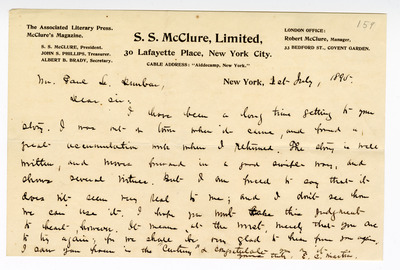 159
The Associated Literary Press.
McClure's Magazine.
S. S. McCLURE, President.
JOHN S. PHILLIPS, Treasurer.
ALBERT B. BRADY, Secretary.
S. S. McClure, Limited,
30 Lafayette Place, New York City.
CABLE ADDRESS: "Aiddocamp, New York."
LONDON OFFICE:
Robert McClure, Manager,
33 BEDFORD ST., COVENT GARDEN.
New York, 1st July, 1895.
Mr. Paul L. Dunbar,
Dear sir:
I have been a long time getting to your
story. I was out of town when it came, and found a
great accumulation when I returned. The story is well
written, and moves forward in a good way, and
shows several virtues. But I am forced to say that it
does not seem very real to me; and I don't see how
we can use it. I hope you wont take this judgment
to heart, however. It means at the most, merely that you are
to try again; for we shall be very glad to hear from you again.
I saw your poem in the "Century" & congratulate you on it.
Yours truly,